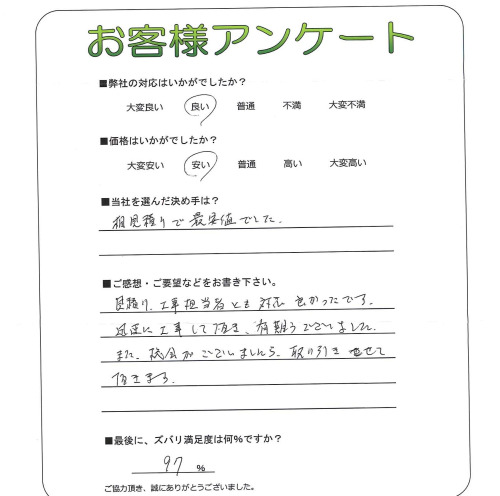 お客様アンケート
■弊社の対応はいかがでしたか？
大変良い 良い 普通 不満 大変不満
■価格はいかがでしたか？
大変安い 安い 普通 高い 大変高い
■当社を選んだ決め手は？
相見積りで最安値でした。
■ご感想・ご要望などをお書き下さい。
見積り、工事担当者とも対応良かったです。
迅速に工事して頂き、有難うございました。
また、機会がございましたら、取り引きさせて
頂きます。
■最後に、ズバリ満足度は何%ですか？
97 %
ご協力頂き、誠にありがとうございました。